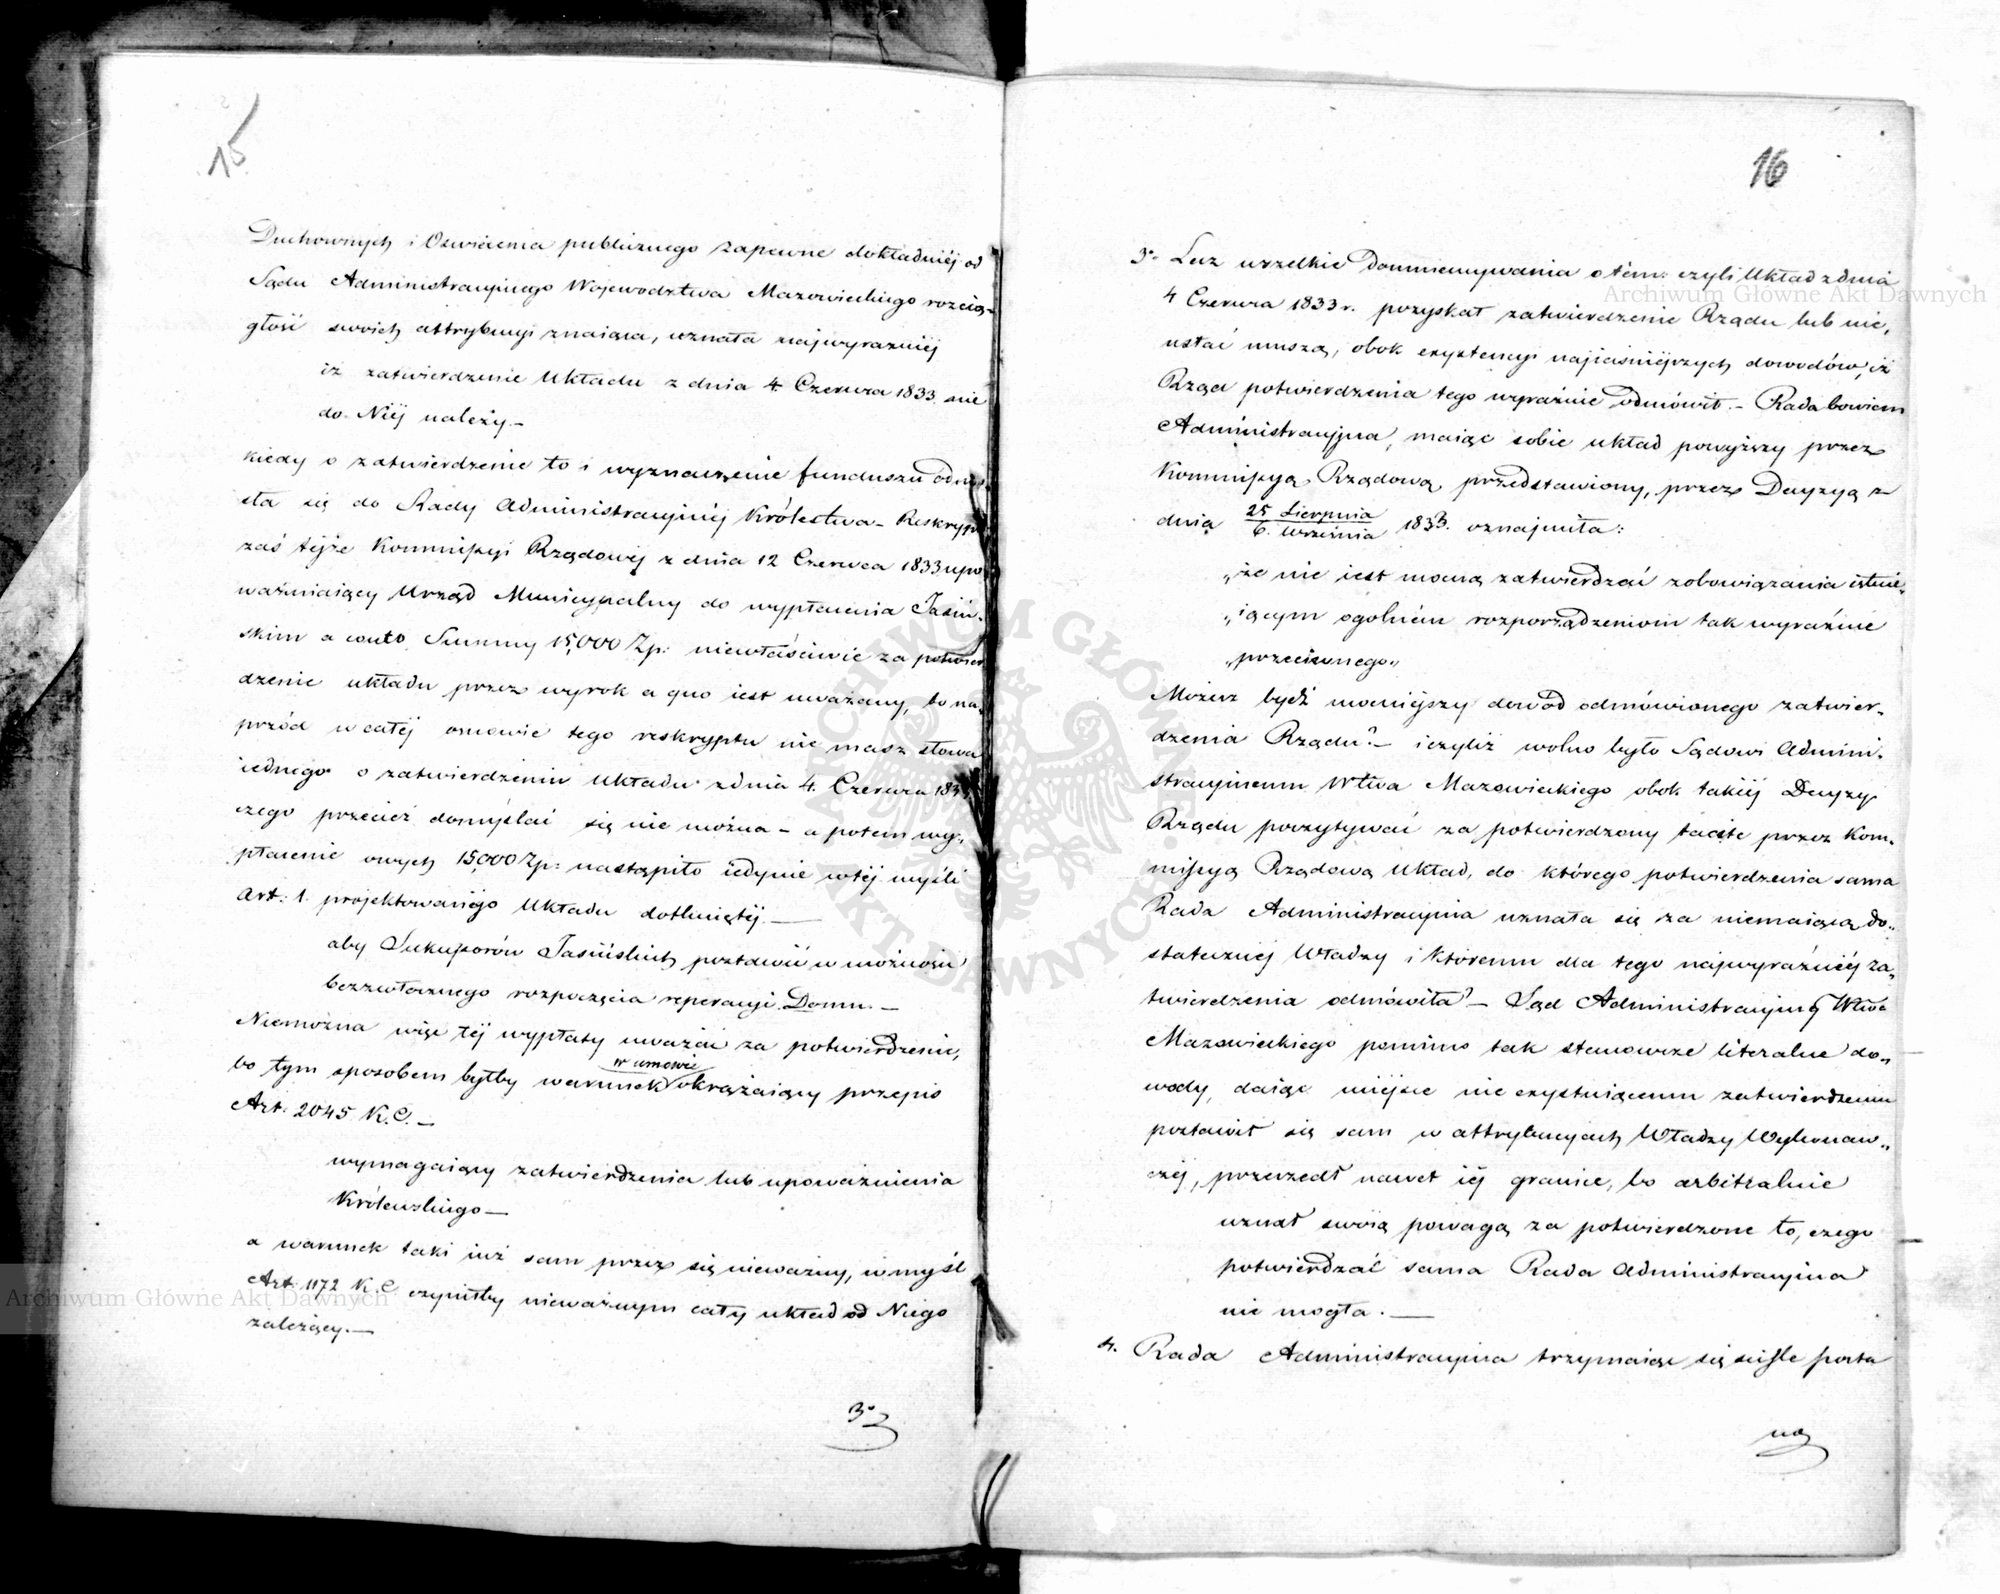 15
Duchownych i Oswiecenia publicznego zapewne dokładniéj od
Sądu Administracyjnego Województwa Mazowieckiego rozcią-
głość swoich attrybucyi znaiąca, uznała najwyrazniéj
iż zatwierdzenie Układu z dnia 4 Czerwca 1833 nie
do Niéj należy.-
kiedy o zatwierdzenie to i wyznaczenie funduszu odnio-
sła się do Rady Administracyjnéj Królestwa – Reskrypt
zaś téjże Kommissyi Rządowéj z dnia 12 Czerwca 1833 upo-
ważniaiący Urząd Municypalny do wypłacenia Jasiń-
skim a conto Summy 15,000 Zp: niewłaściwie za potwier
dzenie układu przez wyrok a quo iest uważany, bo na-
przód w całéj osnowie tego reskryptu nie masz słowa
iednego o zatwierdzeniu Układu z dnia 4. Czerwca 1833
czego przecież domyślać się nie można – a potem wy-
płacenie owych 15,000 Zp: nastąpiło iedynie w téj myśli
Art: 1. projektowanégo Układu dotkniętéj. —
aby Sukcessorów Jasińskich postawić w możności
bezzwłocznego rozpoczęcia reperacyi Domu. —
Niemożna więc téj wypłaty uważać za potwierdzenie,
w umowie
bo tym sposobem byłby warunek okrążaiący przepis
Art: 2045 K.C. —
wymagaiący zatwierdzenia lub upoważnienia
Królewskiego —
a warunek taki iuż sam przez się nieważny, w myśl
Art: 1172 K.C. czyniłby nieważnym cały układ od Niego
zależący. —
3º
16
3º Lecz wszelkie Doumiemywania o tém: czyli Układ z dnia
4 Czerwca 1833 r. pozyskał zatwierdzenie Rządu lub nie,
ustać muszą, obok exystencyi najiaśniéjszych dowodów, iż
Rząd potwierdzenia tego wyraźnie odmówił. – Rada bowiem
Administracyjna, maiąc sobie układ powyższy przez
Kommissyą Rządową przedstawiony, przez Decyzyą z
dnia 25 Sierpnia / 6. Września 1833. oznajmiła:
„że nie iest mocną zatwierdzać zobowiązania istnie-
„iącym ogolném rozporządzeniom tak wyraźnie
„przeciwnego„
Możesz bydź mocniéjszy dowód odmówionego zatwier-
dzenia Rządu? – i czyliż wolno było Sądowi Admini-
stracyinemu Wtwa Mazowieckiego obok takiéj Decyzyi
Rządu poczytywać za potwierdzony tacite przez Kom-
missyą Rządową Układ, do którego potwierdzenia sama
Rada Administracyina uznała się za niemaiącą do-
statecznéj Władzy i któremu dla tego najwyraźniéj za-
twierdzenia odmówiła? – Sąd Administracyjny Wtwa
Mazowieckiego pomimo tak stanowcze literalne do-
wody, daiąc miéjsce nie exystuiącemu zatwierdzeniu
postawił się sam w attrybucyach Władzy Wykonaw-
czéj, przeszedł nawet iéj granice, bo arbitralnie
uznał swoią powagą za potwierdzone to, czego
potwierdzać sama Rada Administracyina
nie mogła. —
4. Rada Administracyina trzymaiąc się ściśle posta
no